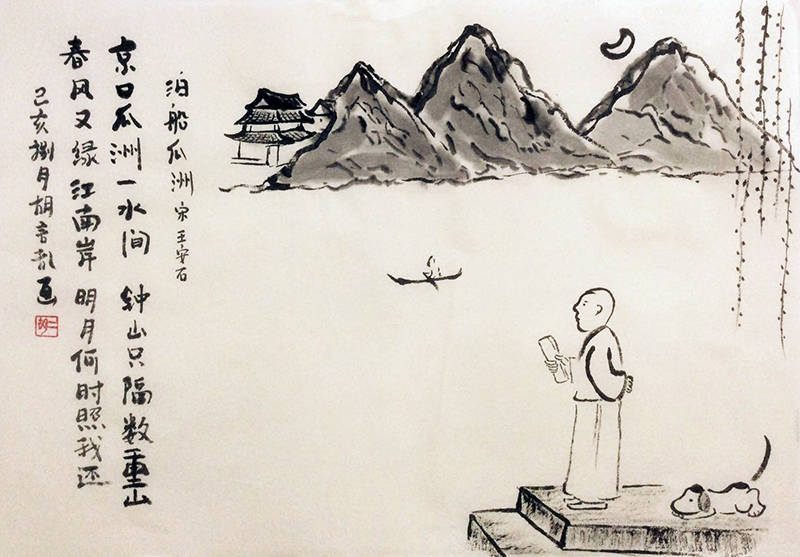 泊船瓜洲 宋 王安石
京口瓜洲一水间 钟山只隔数重山
春风又绿江南岸 明月何时照我还
己亥捌月胡言乱画